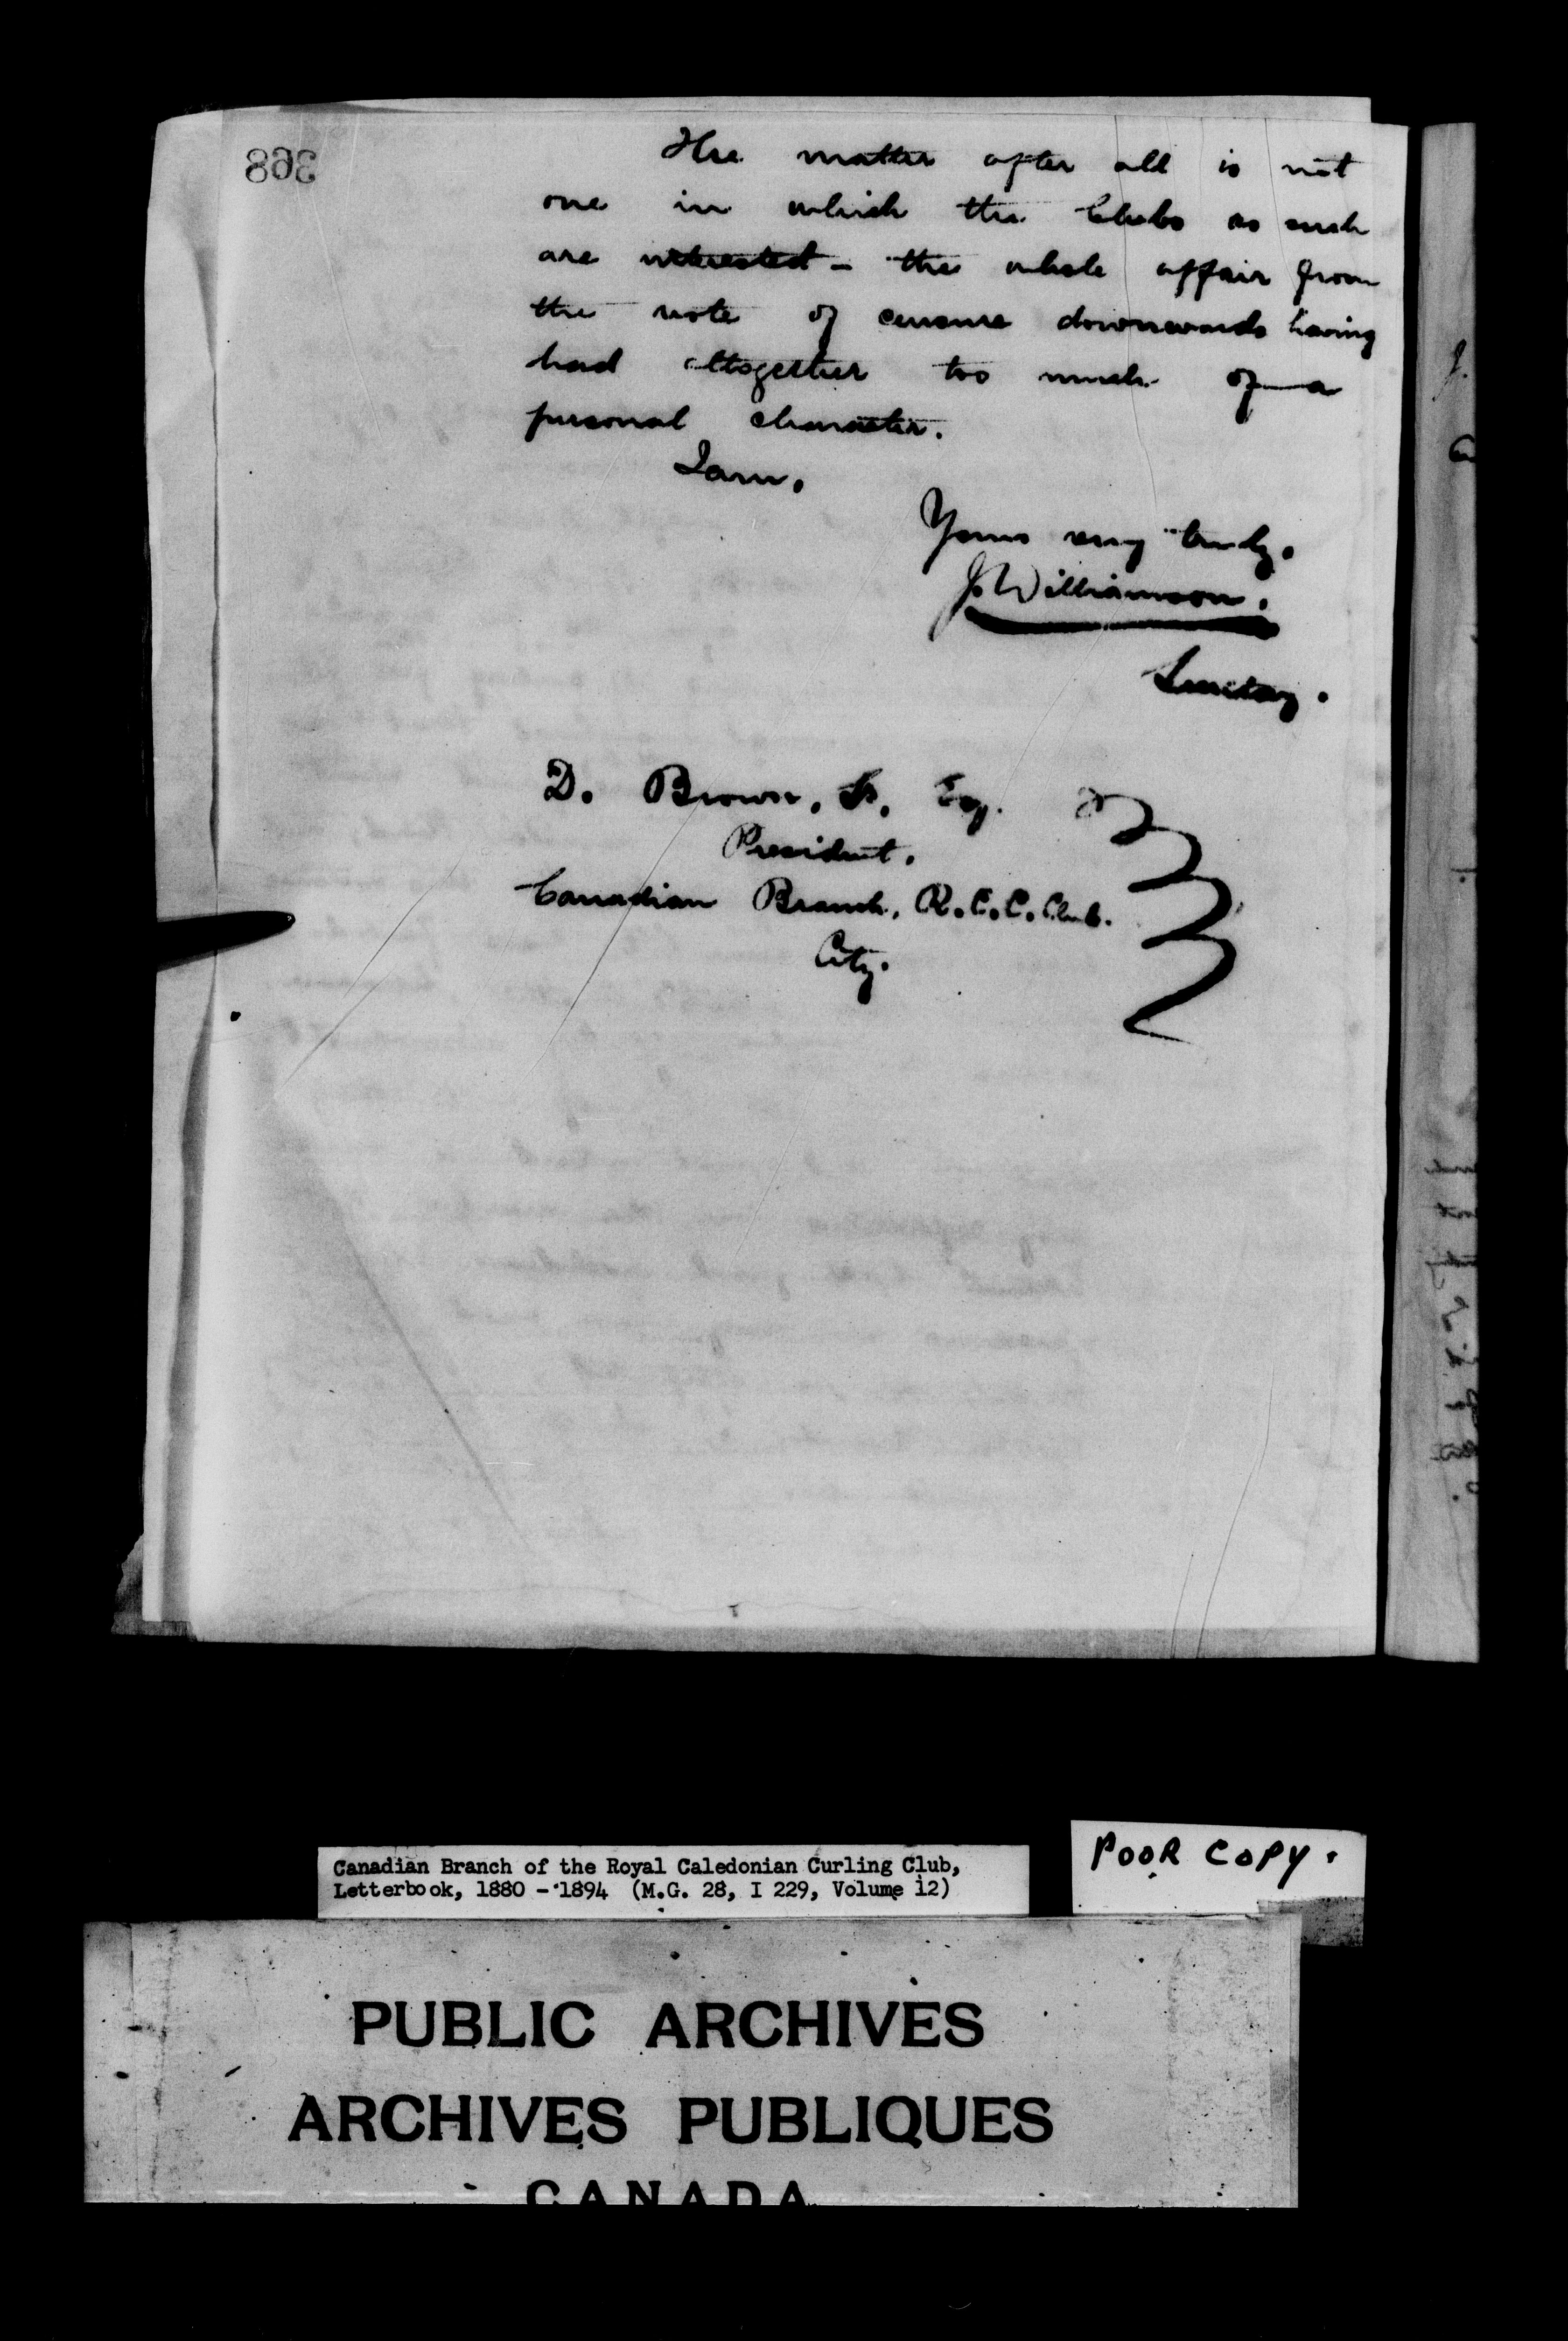 368
The matter after all is not
one in which the Clubs as such
are interested - the whole affair from
the vote of censure downwards having
had altogether too much of a
personal character.
I am,
Yours very truly.
J. Williamson.
Secretary.
D. Brown, Esq.
President.
Canadian Branch, R.C.C. Club.
City.
Canadian Branch of the Royal Caledonian Curling Club,
Letterbook, 1880 - 1894 (M.G. 28, I 229, Volume 12)
POOR COPY.
PUBLIC ARCHIVES
ARCHIVES PUBLIQUES
CANADA